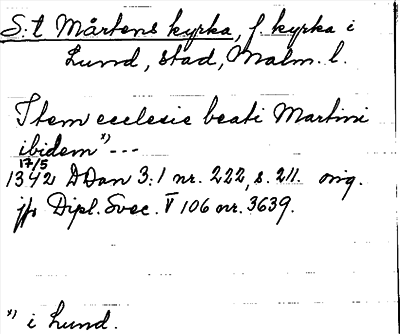 S:t Mårtens kyrka, f. kyrka i
Lund, stad, Malm. l.
Item ecclesie beati Martini
ibidem x) ---
17/5
1342 DDan 3:1 nr. 222, s. 211. orig.
jfr Dipl. Svec. V 106 nr. 3639.
x) i Lund.